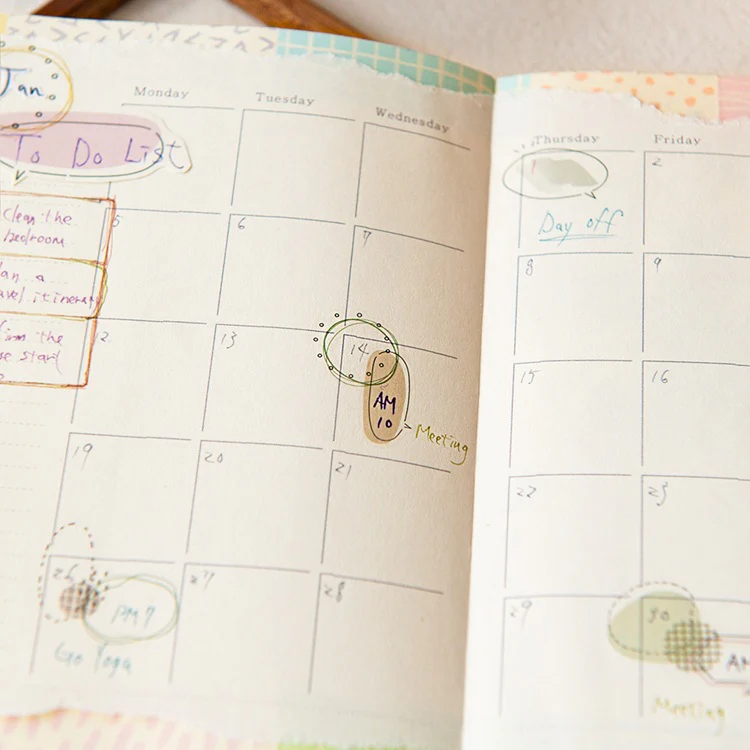 Jan
To Do List
Monday
Tuesday
Wednesday
Thursday
Friday
1
2
Day off
Clean the
bedroom
5
6
7
8
9
12
13
14
15
16
AM
10
Meeting
19
20
21
22
23
26
27
28
29
30
PM 7
Go Yoga
AM
Meeting
a
the
start